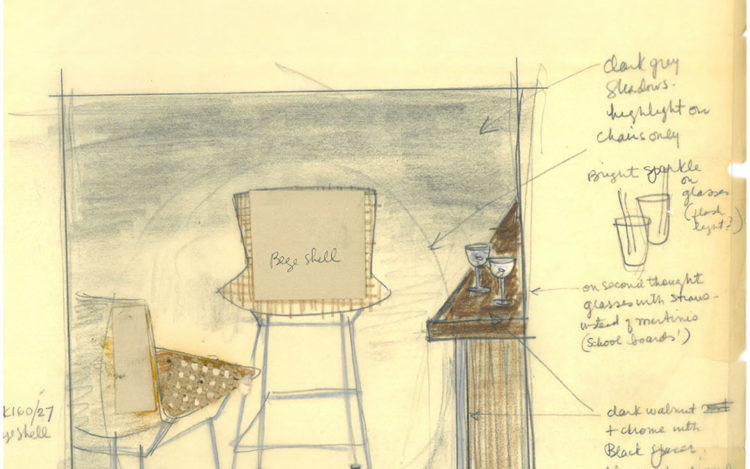 dark grey
Shadows.
highlight on
Chairs only
Bright sparkle
on
glasses
(flash
light?)
Bege Shell
on second thought
glasses with straws
instead of martinis
(School boards!)
K160/27
ge shell
dark walnut
+ chrome with
Black spacer